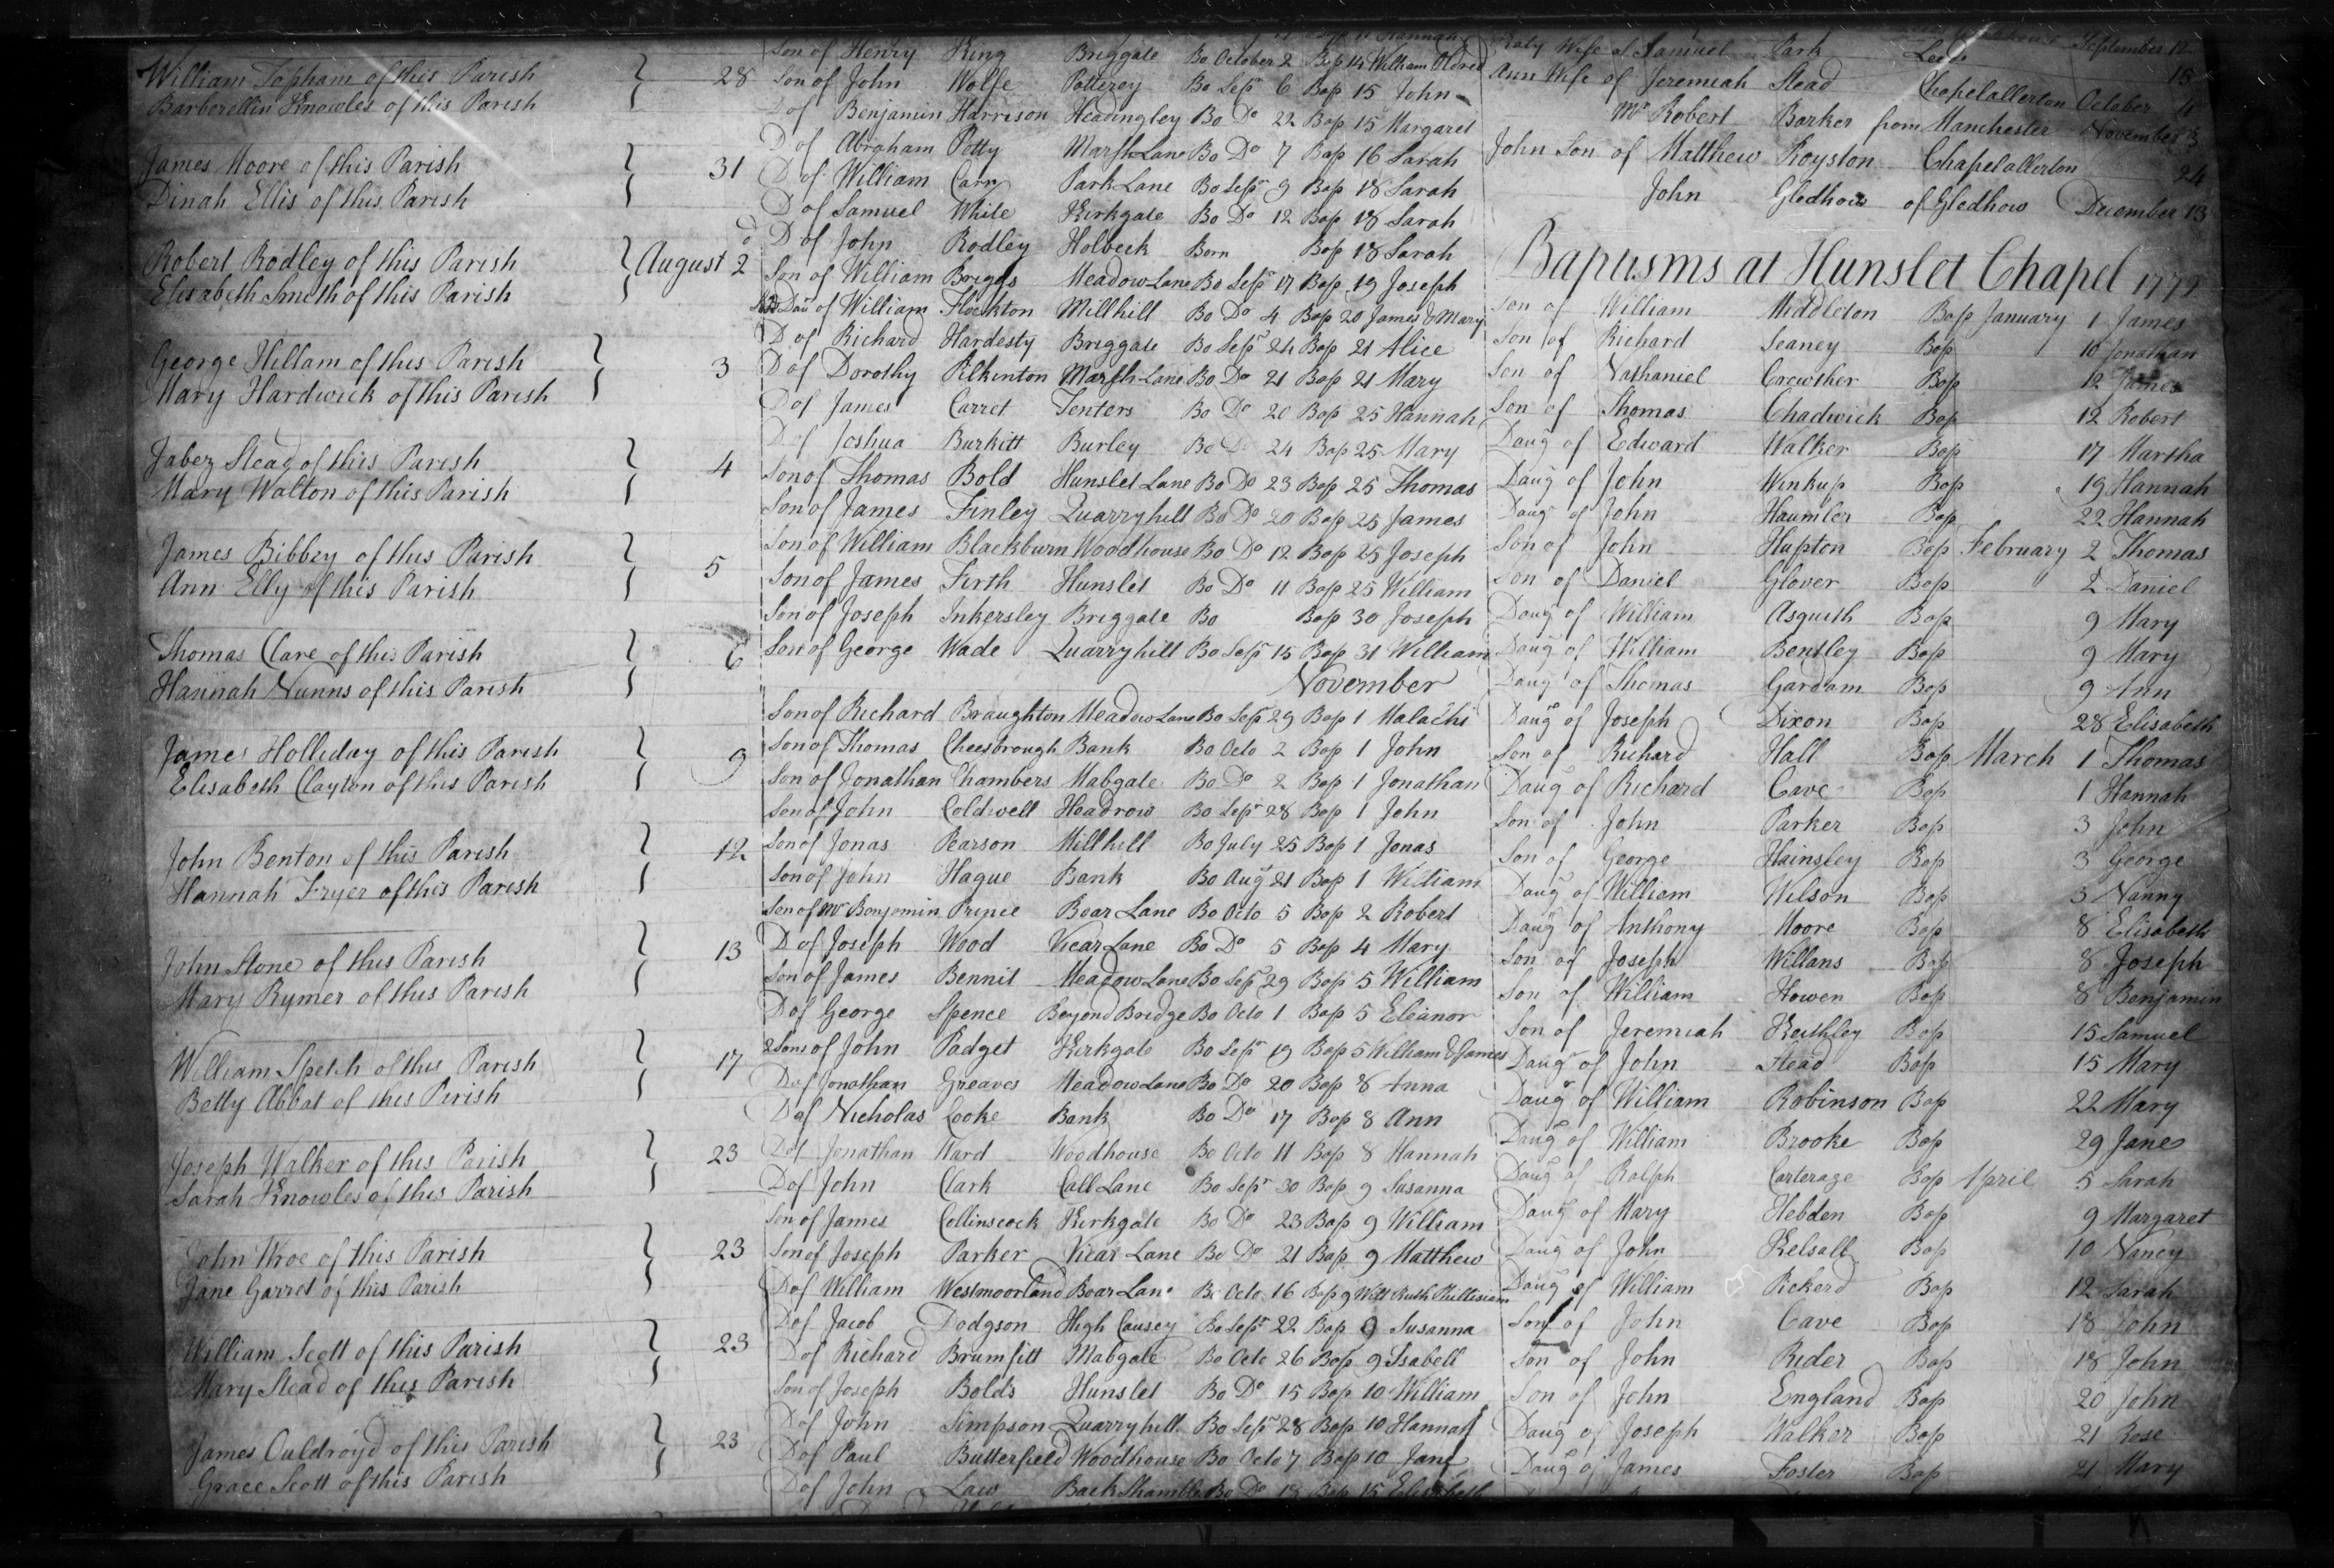 William Topham of this Parish } 28
Barberellin Knowles of this Parish
James Moore of this Parish } 31
Dinah Ellis of this Parish
Robert Rodley of this Parish } August 2
Elisabeth Smith of this Parish
George Hillam of this Parish } 3
Mary Hardwick of this Parish
Jabez Stead of this Parish } 4
Mary Walton of this Parish
James Bibbey of this Parish } 5
Ann Elly of this Parish
Thomas Clare of this Parish } 6
Hannah Nunns of this Parish
James Holliday of this Parish } 9
Elisabeth Clayton of this Parish
John Benton of this Parish } 12
Hannah Fryer of this Parish
John Stone of this Parish } 13
Mary Rymer of this Parish
William Spetch of this Parish } 17
Betty Abbat of this Parish
Joseph Walker of this Parish } 23
Sarah Knowles of this Parish
John Wroe of this Parish } 23
Jane Garret of this Parish
William Scott of this Parish } 23
Mary Stead of this Parish
James Ouldroyd of this Parish } 23
Grace Scott of this Parish
Son of Henry King Briggate Bo October 2 Bap 14 William Oldred
Son of John Wolfe Potterey Bo Sepr 6 Bap 15 John
D of Benjamin Harrison Headingley Bo Do 22 Bap 15 Margaret
D of Abraham Potty Marsh Lane Bo Do 7 Bap 16 Sarah
D of William Carr Park Lane Bo Sepr 9 Bap 18 Sarah
D of Samuel White Kirkgate Bo Do 12 Bap 18 Sarah
D of John Rodley Holbeck Born Bap 18 Sarah
Son of William Briggs Meadow Lane Bo Sepr 17 Bap 19 Joseph
Dau of William Flockton Millhill Bo Do 4 Bap 20 James & Mary
D of Richard Hardesty Briggate Bo Sepr 24 Bap 21 Alice
D of Dorothy Pilkinton Marsh Lane Bo Do 21 Bap 21 Mary
D of James Carret Tenters Bo Do 20 Bap 25 Hannah
D of Joshua Burkitt Burley Bo Do 24 Bap 25 Mary
Son of Thomas Bold Hunslet Lane Bo Do 23 Bap 25 Thomas
Son of James Finley Quarryhill Bo Do 20 Bap 25 James
Son of William Blackburn Woodhouse Bo Do 12 Bap 25 Joseph
Son of James Firth Hunslet Bo Do 11 Bap 25 William
Son of Joseph Inkersley Briggate Bo Bap 30 Joseph
Son of George Wade Quarryhill Bo Sepr 15 Bap 31 William
November
Son of Richard Braughton Meadow Lane Bo Sepr 29 Bap 1 Malachi
Son of Thomas Cheesbrough Bank Bo Octo 2 Bap 1 John
Son of Jonathan Chambers Mabgate Bo Do 2 Bap 1 Jonathan
Son of John Coldwell Headrow Bo Sepr 28 Bap 1 John
Son of Jonas Pearson Millhill Bo July 25 Bap 1 Jonas
Son of John Hague Bank Bo Augt 21 Bap 1 William
Son of Mr Benjamin Prince Boar Lane Bo Octo 5 Bap 2 Robert
D of Joseph Wood Vicar Lane Bo Do 5 Bap 4 Mary
Son of James Bennit Meadow Lane Bo Sepr 29 Bap 5 William
D of George Spence Beyond Bridge Bo Octo 1 Bap 5 Eleanor
2 Sons of John Padget Kirkgate Bo Sepr 19 Bap 5 William & James
D of Jonathan Greaves Meadow Lane Bo Do 20 Bap 8 Anna
D of Nicholas Cooke Bank Bo Do 17 Bap 8 Ann
D of Jonathan Ward Woodhouse Bo Octo 11 Bap 8 Hannah
D of John Clark Call Lane Bo Sepr 30 Bap 9 Susanna
Son of James Collinscock Kirkgate Bo Do 23 Bap 9 William
Son of Joseph Parker Vicar Lane Bo Do 21 Bap 9 Matthew
D of William Westmoorland Boar Lane Bo Octo 16 Bap 9 Ruth
D of Jacob Dodgson High Causey Bo Sepr 22 Bap 9 Susanna
D of Richard Brumfitt Mabgate Bo Octo 26 Bap 9 Isabell
Son of Joseph Bolds Hunslet Bo Do 15 Bap 10 William
D of John Simpson Quarryhill Bo Sepr 28 Bap 10 Hannah
D of Paul Butterfield Woodhouse Bo Octo 7 Bap 10 Jane
D of John Law Back Shambles Bo Do 18 Bap 15 Elisabeth
Wife of Samuel Park Leeds September 12
Ann Wife of Jeremiah Stead Chapelallerton October 4
Mr Robert Barker from Manchester November 3
John Son of Matthew Royston Chapelallerton 24
John Gledhow of Gledhow December 13
Baptisms at Hunslet Chapel 1772
Son of William Middleton Bap January 1 James
Son of Richard Seaney Bap 10 Jonathan
Son of Nathaniel Crowther Bap 12 James
Son of Thomas Chadwick Bap 12 Robert
Daugr of Edward Walker Bap 17 Martha
Daugr of John Winkup Bap 19 Hannah
Daugr of John Haumler Bap 22 Hannah
Son of John Hupton Bap February 2 Thomas
Son of Daniel Glover Bap 2 Daniel
Daugr of William Asquith Bap 9 Mary
Daugr of William Bentley Bap 9 Mary
Daugr of Thomas Gardam Bap 9 Ann
Daugr of Joseph Dixon Bap 28 Elisabeth
Son of Richard Hall Bap March 1 Thomas
Daugr of Richard Cave Bap 1 Hannah
Son of John Parker Bap 3 John
Son of George Hainsley Bap 3 George
Daugr of William Wilson Bap 3 Nanny
Daugr of Anthony Moore Bap 8 Elisabeth
Son of Joseph Willans Bap 8 Joseph
Son of William Howen Bap 8 Benjamin
Son of Jeremiah Keithley Bap 15 Samuel
Daugr of John Stead Bap 15 Mary
Daugr of William Robinson Bap 22 Mary
Daugr of William Brooke Bap 29 Jane
Daugr of Ralph Carterage Bap April 5 Sarah
Daugr of Mary Hebden Bap 9 Margaret
Daugr of John Kelsall Bap 10 Nancy
Daugr of William Pickerd Bap 12 Sarah
Son of John Cave Bap 18 John
Son of John Rider Bap 18 John
Son of John England Bap 20 John
Daugr of Joseph Walker Bap 21 Rose
Daugr of James Foster Bap 21 Mary